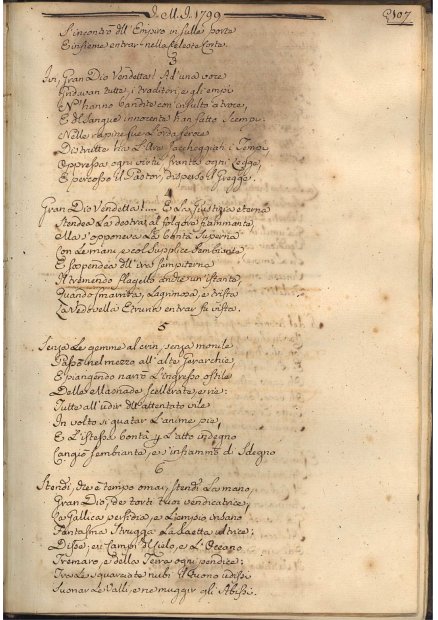 J. M. J. 1799
107
S'incontrò dell'Empiro in sulle porte
E insieme entrar nella Celeste Corte.
3
Ivi, Gran Dio Vendetta! Ad una voce
Gridavan tutte, i traditori, e gli empi
N'hanno bandite con insulto atroce,
E del Sangue innocente han fatto Scempi:
Nelle rapine sue l'orda feroce
Distrutte ha l'Are, saccheggiati i Tempi,
Oppressa ogni virtù, franta ogni Legge,
E percosso il Pastor, disperso il Gregge.
4
Gran Dio Vendetta!.... E La Giustizia eterna
Stendea La destra al folgore fiammante,
Ma s'opponeva La Bontà Superna
Con Le mani, e col Supplice Sembiante,
E sospendea dell'ira sempiterna
Il tremendo flagello anche un'istante,
Quando smarrita, Lagrimosa, e trista
La Vedovella Etruria entrar fu vista.
5
Senza Le gemme al crin, senza monile
Passò nel mezzo all'alte Gerarchie,
E piangendo narrò L'ingresso ostile
Delle Masnade scellerate, e rie:
Tutte all'udir dell'attentato vile
In volto si guatar L'anime pie,
E L'istessa bontà L'atto indegno
Cangiò sembiante, e s'infiammò di Sdegno
6
Stendi, che è tempo omai, stendi La mano,
Gran Dio, de' torti tuoi vendicatrice,
La Gallica perfidia, e L'empio insano
Fantasma Strugga La Saetta ultrice:
Disse, e i Campi del Cielo, e L'Oceano
Tremaro, e della Terra ogni pendice:
Tra Le squarciate nubi il tuono
Suonar Le Valli, e ne muggir gli Abissi.